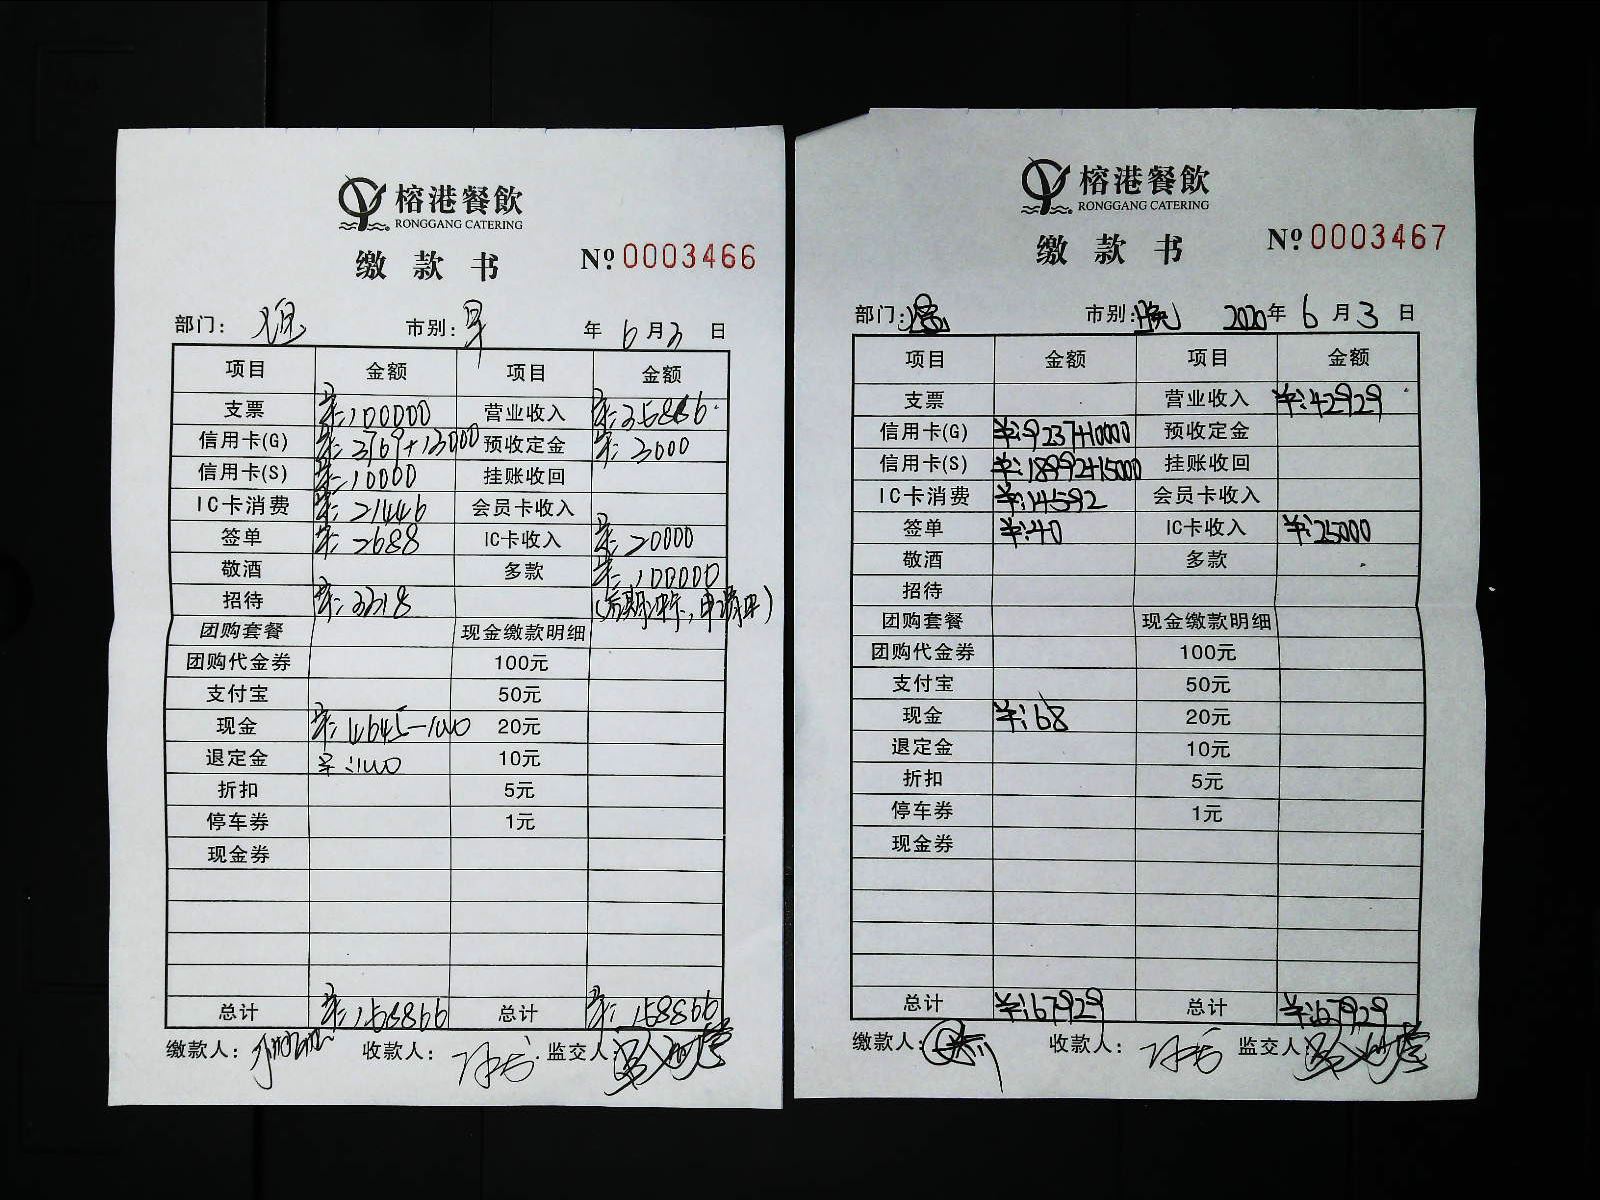 榕港餐飲
RONGGANG CATERING
缴款书 Nº 0003466
部门: 市别: 早 年 6 月 3 日
项目 金额 项目 金额
支票 ¥:100000 营业收入 ¥:35866
信用卡(G) ¥:3769+13000 预收定金 ¥:3000
信用卡(S) ¥:10000 挂账收回
IC卡消费 ¥:21446 会员卡收入
签单 ¥:2688 IC卡收入 ¥:20000
敬酒 多款 ¥:100000
招待 ¥:3318
团购套餐 现金缴款明细
团购代金券 100元
支付宝 50元
现金 ¥:4645-1000 20元
退定金 ¥:1000 10元
折扣 5元
停车券 1元
现金券
总计 ¥:158866 总计 ¥:158866
缴款人: 收款人: 监交人:
榕港餐飲
RONGGANG CATERING
缴款书 Nº 0003467
部门: 市别: 晚 2020年 6 月 3 日
项目 金额 项目 金额
支票 营业收入 ¥:42929
信用卡(G) ¥:9237+10000 预收定金
信用卡(S) ¥:18992+15000 挂账收回
IC卡消费 ¥:14592 会员卡收入
签单 ¥:40 IC卡收入 ¥:25000
敬酒 多款
招待
团购套餐 现金缴款明细
团购代金券 100元
支付宝 50元
现金 ¥:68 20元
退定金 10元
折扣 5元
停车券 1元
现金券
总计 ¥:67929 总计 ¥:67929
缴款人: 收款人: 监交人: